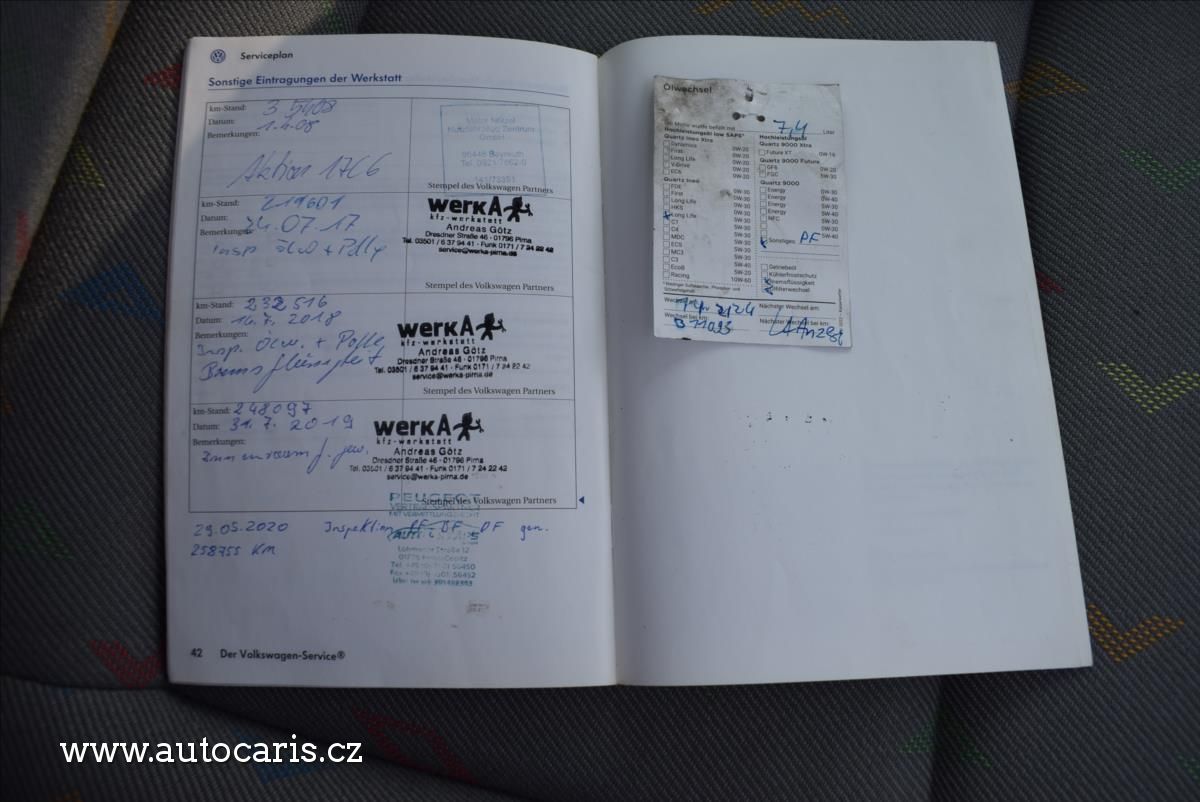 Serviceplan
Sonstige Eintragungen der Werkstatt
km-Stand: 35408
Datum: 1.4.08
Bemerkungen:
Aktion 17C6
Nutzfahrzeug Zentrum
GmbH
95448 Bayreuth
Tel. 0921/7662-0
141/73351
Stempel des Volkswagen Partners
km-Stand: 219601
Datum: 24.07.17
Bemerkungen:
Insp ÖlW + Polly
werkA
kfz-werkstatt
Andreas Götz
Dresdner Straße 46 - 01796 Pirna
Tel. 03501 / 6 37 94 41 - Funk 0171 / 7 24 22 42
service@werka-pirna.de
Stempel des Volkswagen Partners
km-Stand: 232516
Datum: 16.7.2018
Bemerkungen:
Insp. Ölw. + Polle
Bremsflüssigkeit
werkA
kfz-werkstatt
Andreas Götz
Dresdner Straße 46 - 01796 Pirna
Tel. 03501 / 6 37 94 41 - Funk 0171 / 7 24 22 42
service@werka-pirna.de
Stempel des Volkswagen Partners
km-Stand: 248097
Datum: 31.7.2019
Bemerkungen:
werkA
kfz-werkstatt
Andreas Götz
Dresdner Straße 46 - 01796 Pirna
Tel. 03501 / 6 37 94 41 - Funk 0171 / 7 24 22 42
service@werka-pirna.de
PEUGEOT
Stempel des Volkswagen Partners
29.05.2020 Inspektion BF DF gen.
258755 KM
42 Der Volkswagen-Service®
Ölwechsel
Motor wurde befüllt mit 7,4 Liter
Hochleistungsöl low SAPS*
Quartz Ineo Xtra
Dynamics 0W-20
First 0W-20
Long Life 0W-20
V-Drive 0W-20
EC6 0W-20
Quartz Ineo
FDE 0W-30
First 0W-30
Long Life 0W-30
HKS 0W-30
Long Life 5W-30
C1 5W-30
C4 5W-30
MDC 5W-30
ECS 5W-30
MC3 5W-30
C3 5W-40
EcoB 5W-20
Racing 10W-60
Hochleistungsöl
Quartz 9000 Xtra
Future XT 0W-16
Quartz 9000 Future
GF6 0W-20
FGC 5W-30
Quartz 9000
Energy 0W-30
Energy 0W-40
Energy 5W-30
Energy 5W-40
NFC 5W-30
5W-40
Sonstiges PF
Getriebeöl
Kühlerfrostschutz
Bremsflüssigkeit
Filterwechsel
Wechsel am:
Nächster Wechsel am:
Wechsel bei km:
Nächster Wechsel bei km:
www.autocaris.cz